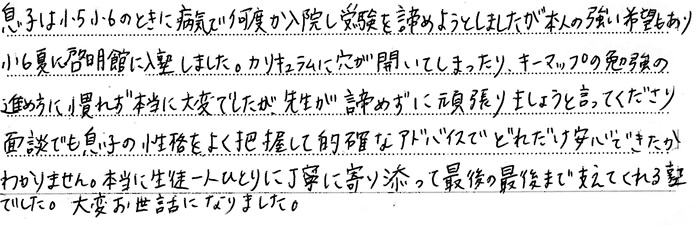 息子は小5小6のときに病気で何度か入院し受験を諦めようとしましたが本人の強い希望もあり
小6夏に啓明館に入塾しました。カリキュラムに穴が開いてしまったり、キーマップの勉強の
進め方に慣れず本当に大変でしたが、先生が諦めずに頑張りましょうと言ってくださり
面談でも息子の性格をよく把握して的確なアドバイスでどれだけ安心できたか
わかりません。本当に生徒一人ひとりに丁寧に寄り添って最後の最後まで支えてくれる塾
でした。大変お世話になりました。